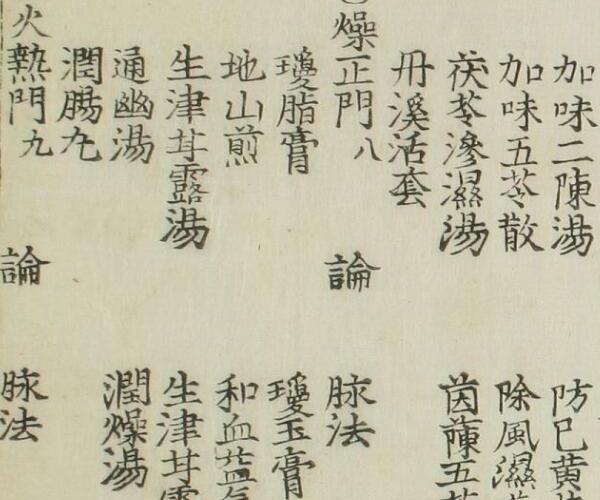 加味二陳湯
防已黄
加味五苓散
除風濕
茯苓滲濕湯
茵蔯五
丹溪活套
燥正門八
論
脉法
瓊脂膏
瓊玉膏
地山煎
和血益氣
生津甘露湯
生津甘露
通幽湯
潤燥湯
潤腸丸
火熱門九
論
脉法